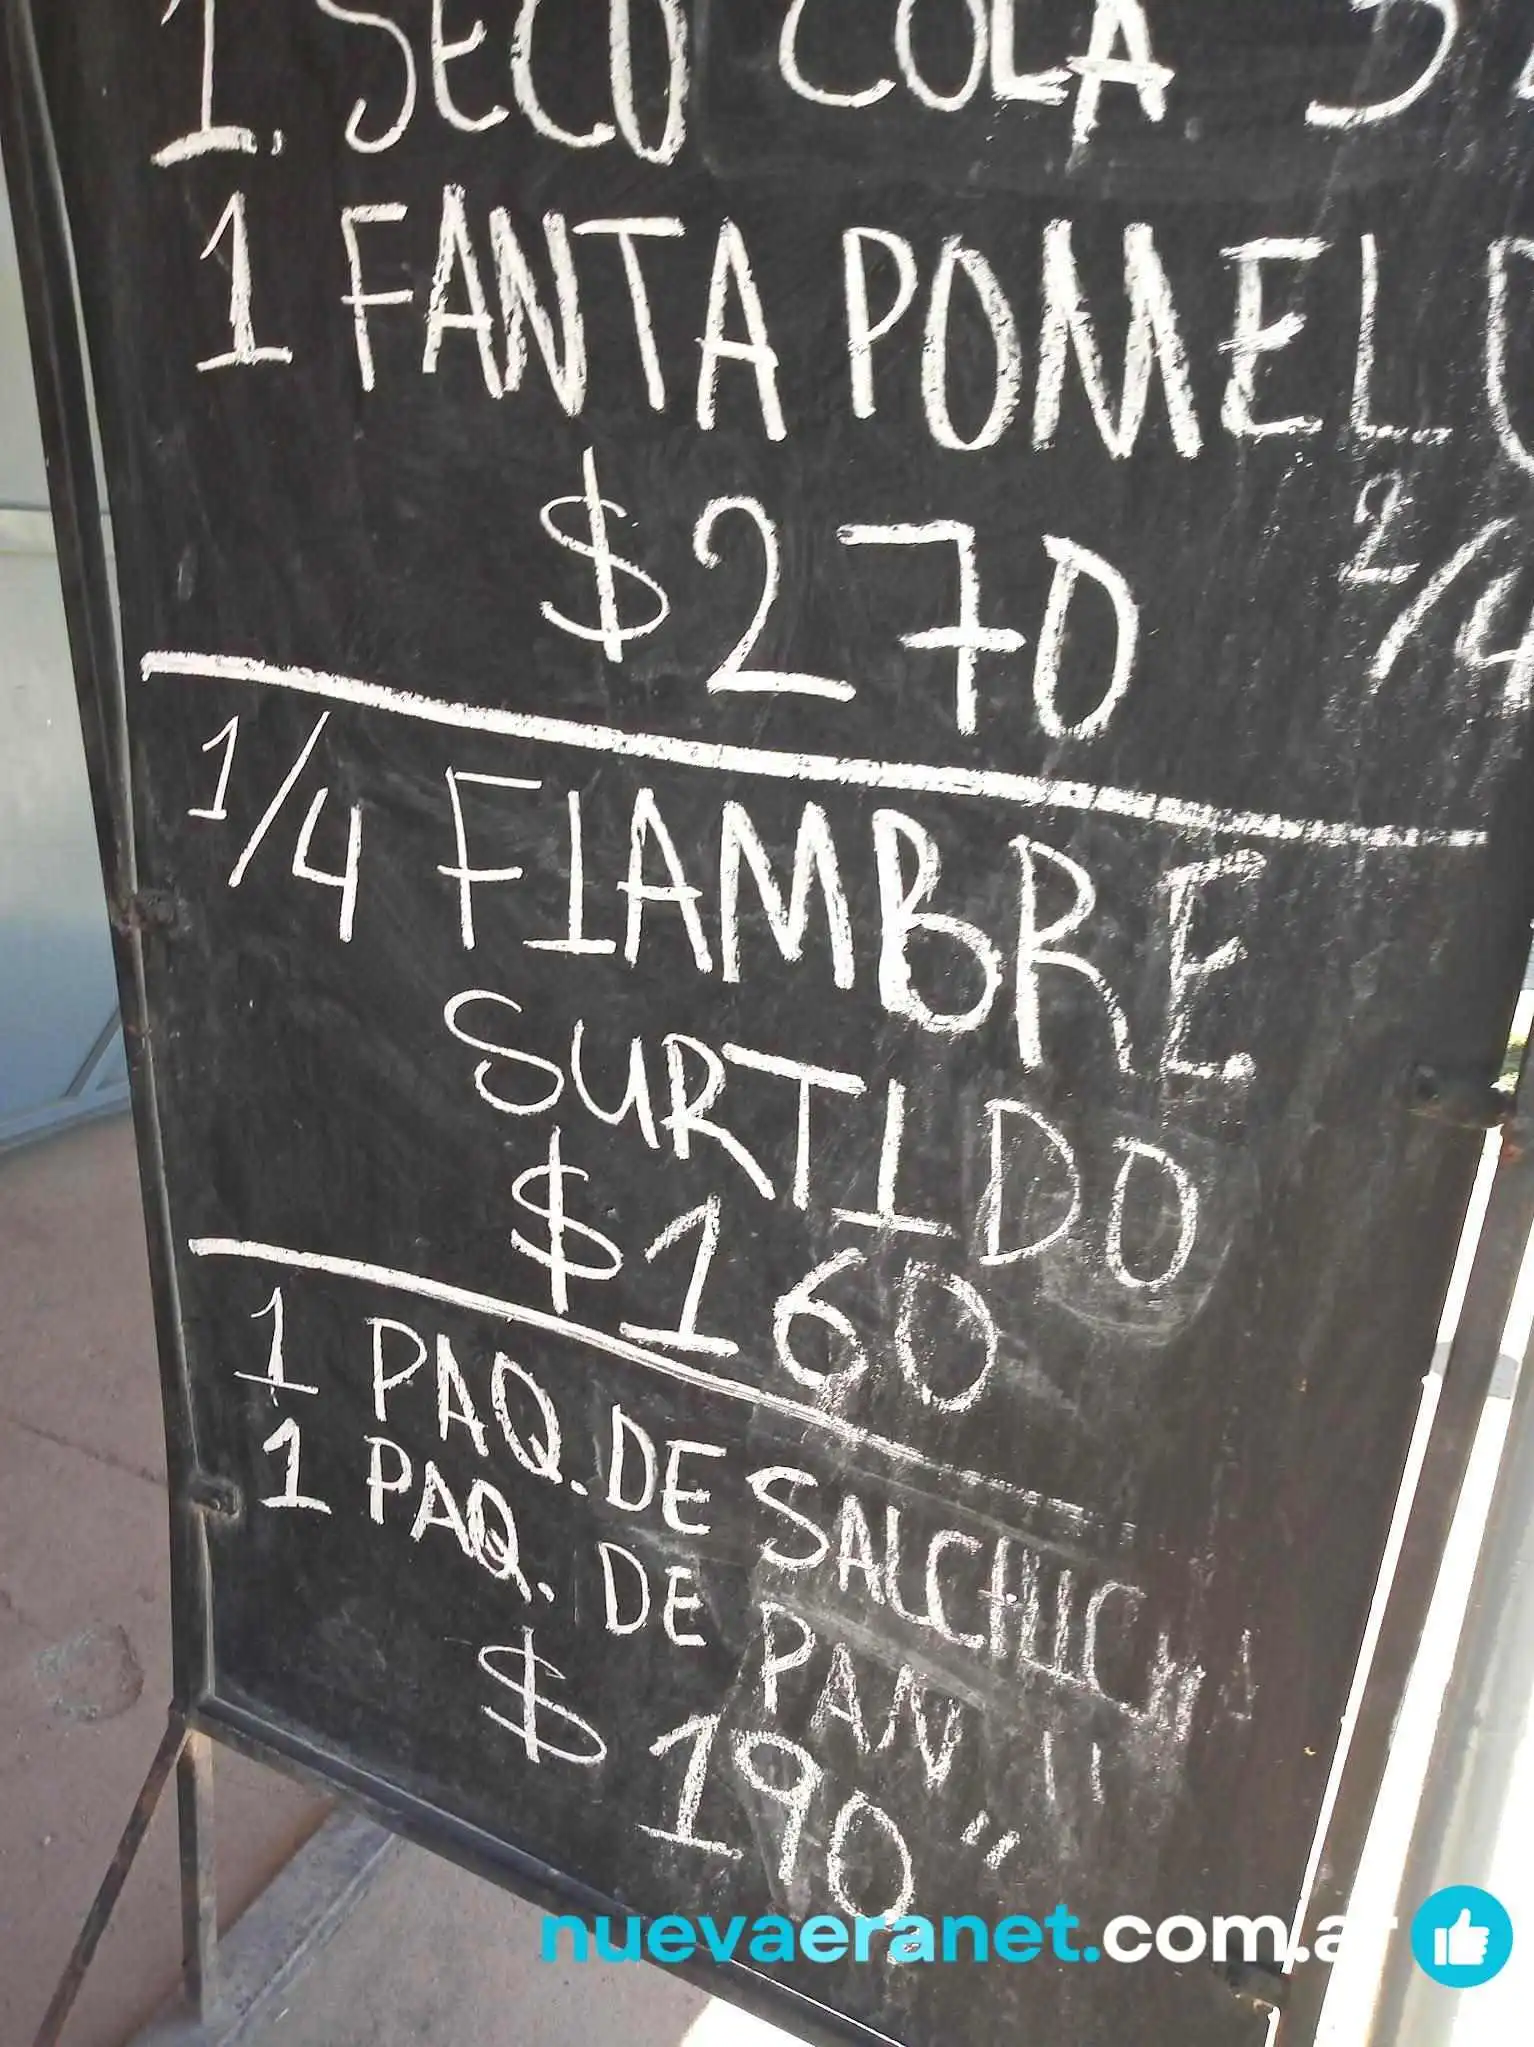 1. SECO COLA 3
1 FANTA POMELO
$270
2/4
1/4 FIAMBRE
SURTIDO
$160
1 PAQ. DE SALCHICH
1 PAQ. DE PAN "
$ 190"
nuevaeranet.com.ar